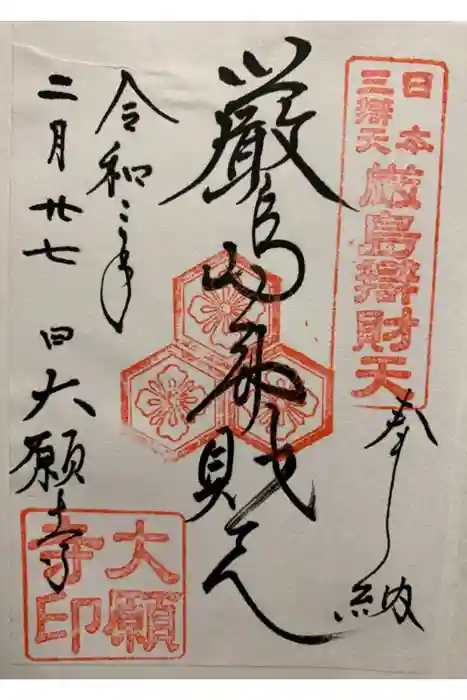 日本
三辯天
厳島辯財天
奉納
厳島弁財天
令和二年
二月廿七日大願寺
大願
寺印